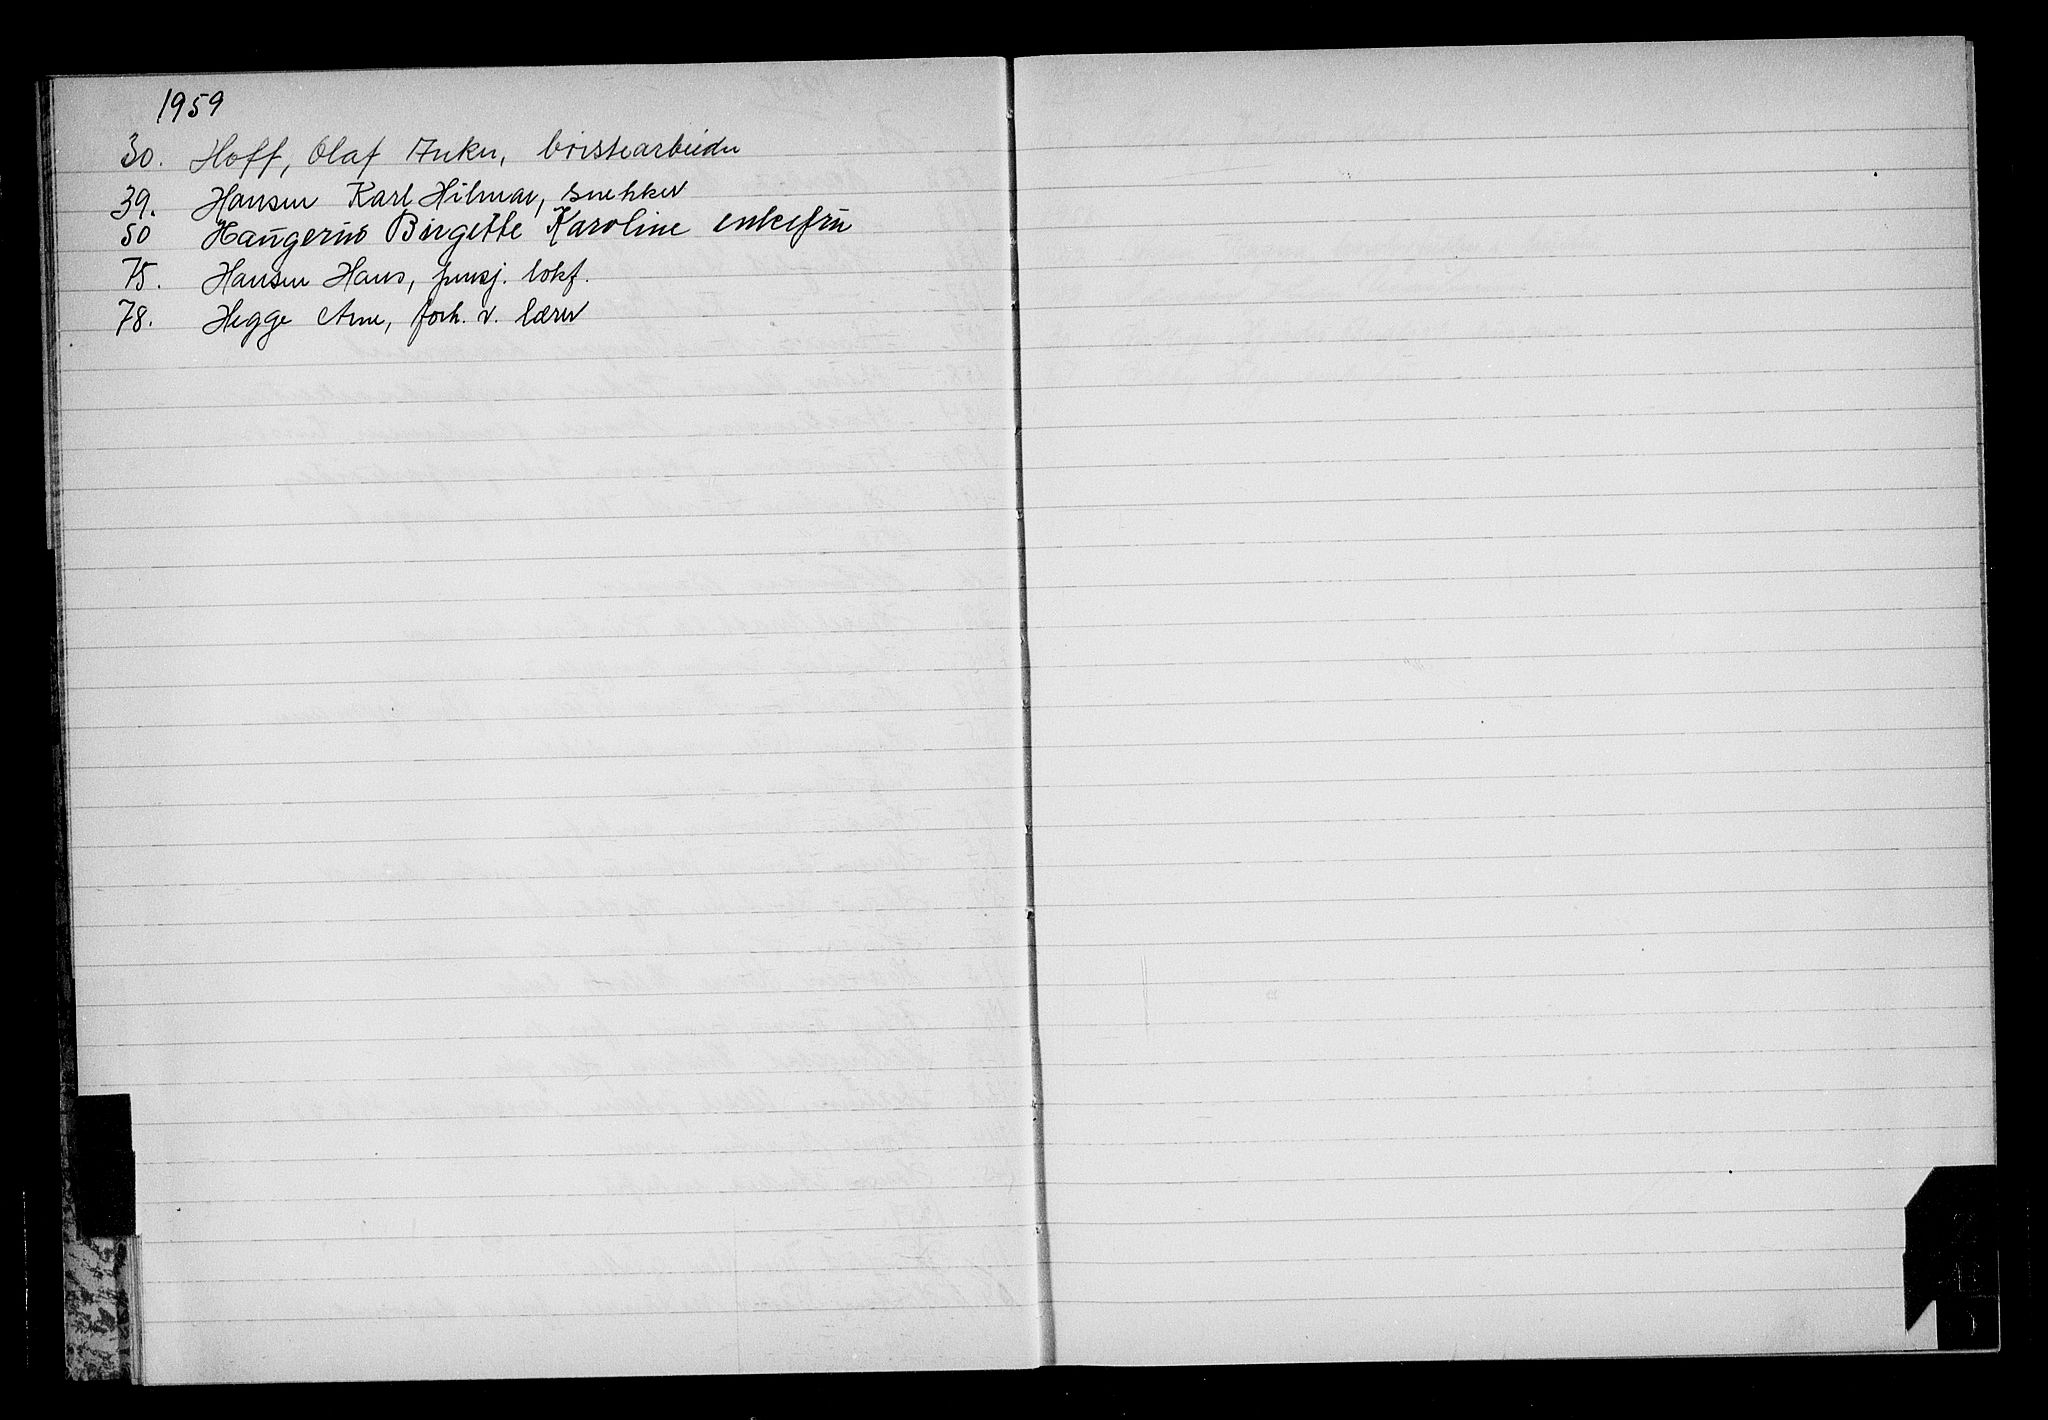 1959
30. Hoff, Olaf Anker, børstearbeider
39. Hansen Karl Hilmar, snekker
50 Haugerud Birgette Karoline enkefru
75. Hansen Hans, pensj. lokf.
78. Hegge Arne, forh. v. lærer